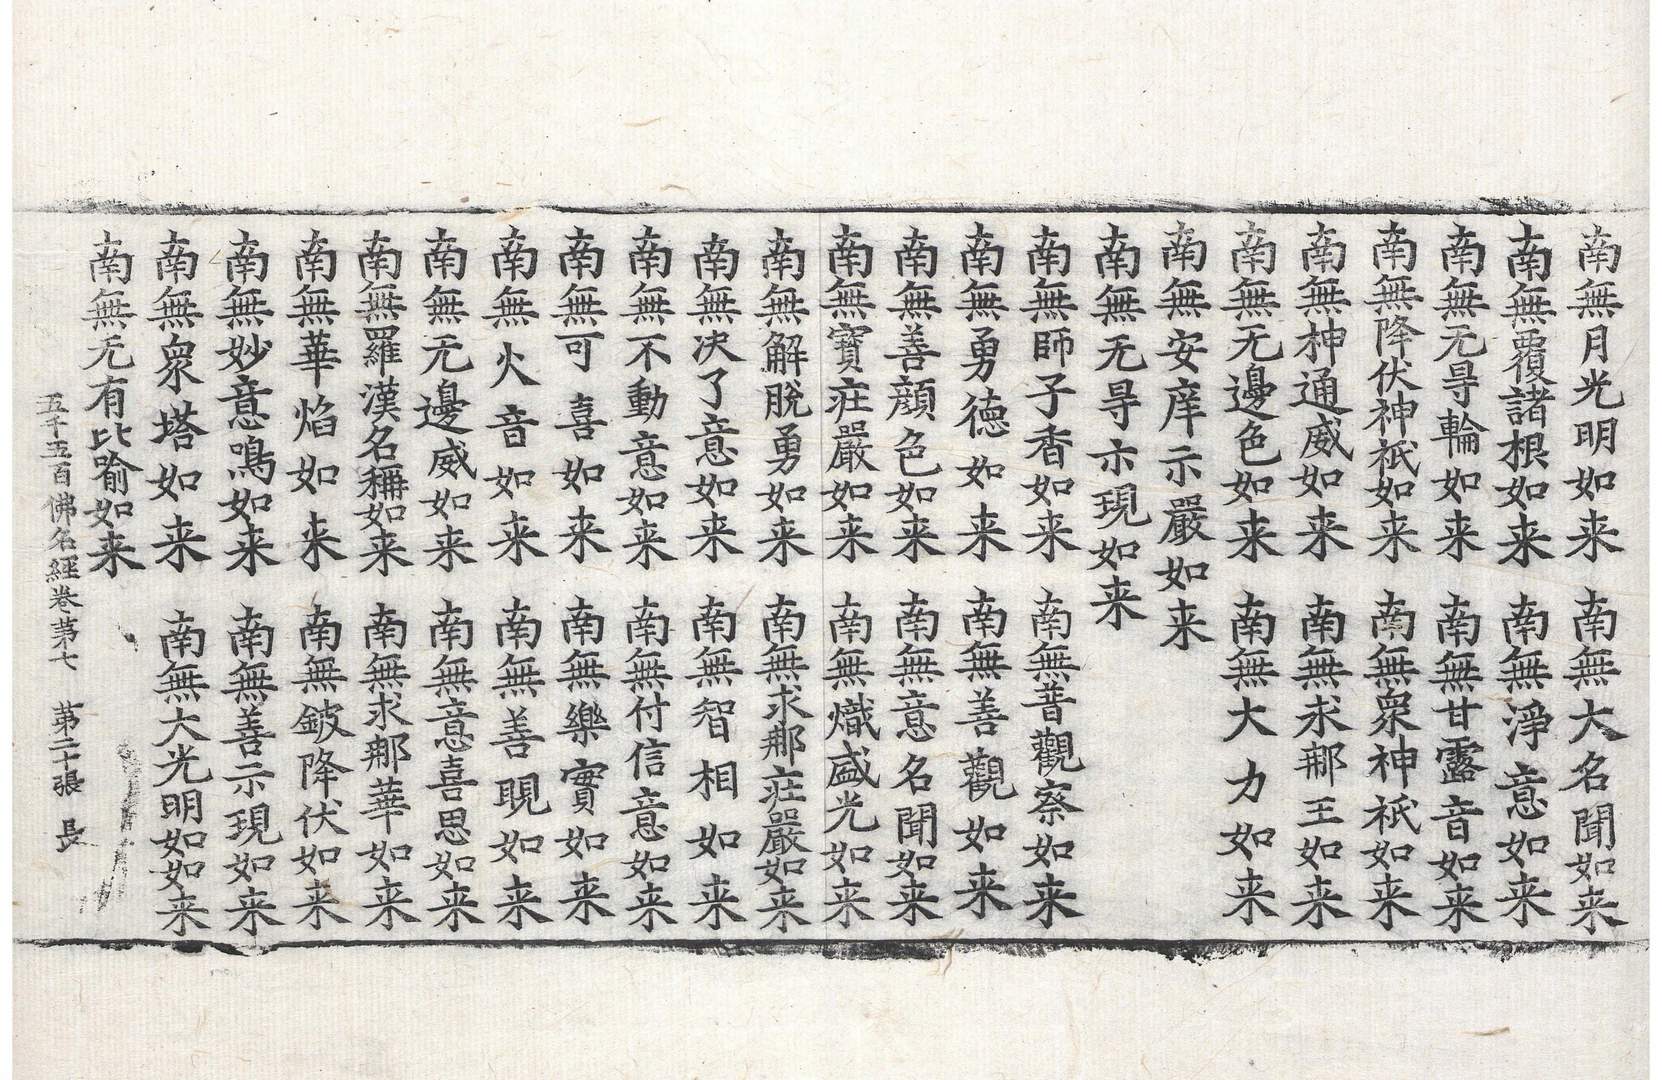 南無月光明如来 南無大名聞如来
南無覆諸根如来 南無淨意如来
南無无㝵輪如来 南無甘露音如来
南無降伏神祇如来 南無衆神祇如来
南無神通威如来 南無求那王如来
南無无邊色如来 南無大力如来
南無安庠示嚴如来
南無无㝵示現如来
南無師子香如来 南無普觀察如来
南無勇德如来 南無善觀如来
南無善顔色如来 南無意名聞如来
南無寶莊嚴如来 南無熾盛光如来
南無解脱勇如来 南無求那莊嚴如来
南無决了意如来 南無智相如来
南無不動意如来 南無付信意如来
南無可喜如来 南無樂實如来
南無火音如来 南無善眼如来
南無无邊威如来 南無意喜思如来
南無羅漢名稱如来 南無求那華如来
南無華焰如来 南無鈹降伏如来
南無妙意鳴如来 南無善示現如来
南無衆塔如来 南無大光明如如来
南無无有比喻如来
五千五百佛名經卷第七 第二十張 長